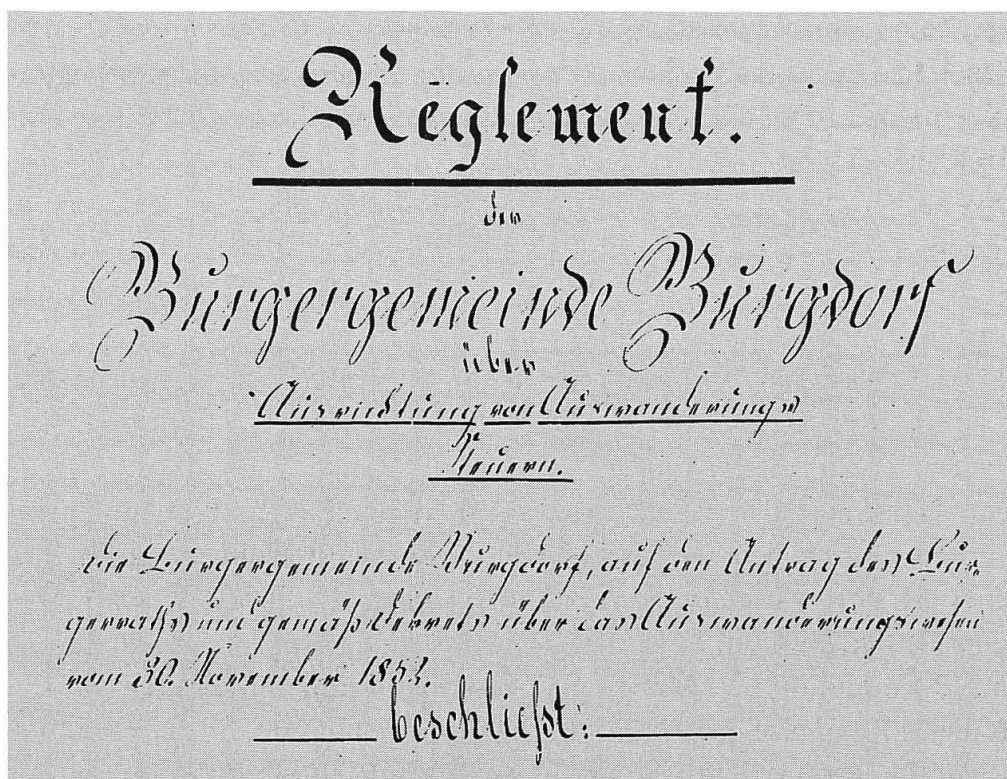 Reglement.
der
Burgergemeinde Burgdorf
über
Ausrichtung von Auswanderungs
Steuern.
Die Burgergemeinde Burgdorf, auf den Antrag des Bur-
gerraths und gemäß Dekrets über das Auswanderungswesen
vom 30. November 1852.
beschließt: